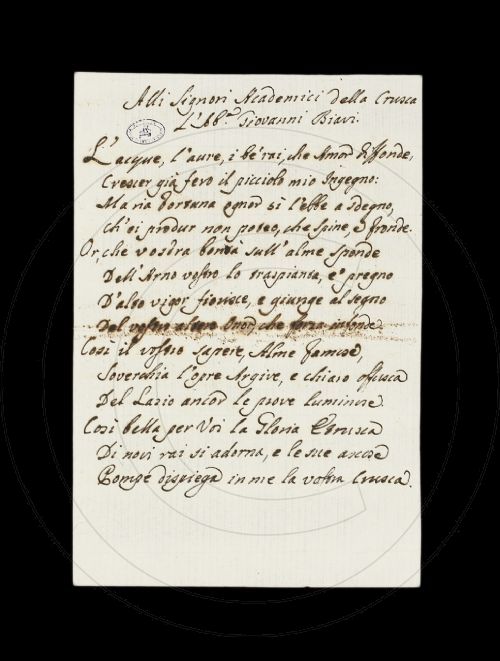 Alli Signori Academici della Crusca
L'Ab.e Giovanni Biavi.
L'acque, l'aure, i be' rai, che Amor diffonde,
Crescer già fero il picciolo mio Ingegno:
Ma ria fortuna ognor sì l'ebbe a sdegno,
ch'ei produr non poteo, che spine, e fronde.
Or, che vostra bontà sull'alme sponde
Dell'Arno vostro lo traspianta, e' pregno
D'alto vigor fiorisce, e giunge al segno
Del vostro altero Onor che forza infonde
Così il vostro sapere, Alme famose,
Soverchia l'opre Argive, e chiaro offusca
Del Lazio ancor le prove luminose.
Così bella per Voi la Gloria Etrusca
Di novi rai si adorna, e le sue ascose
Pompe dispiega in me la vostra Crusca.